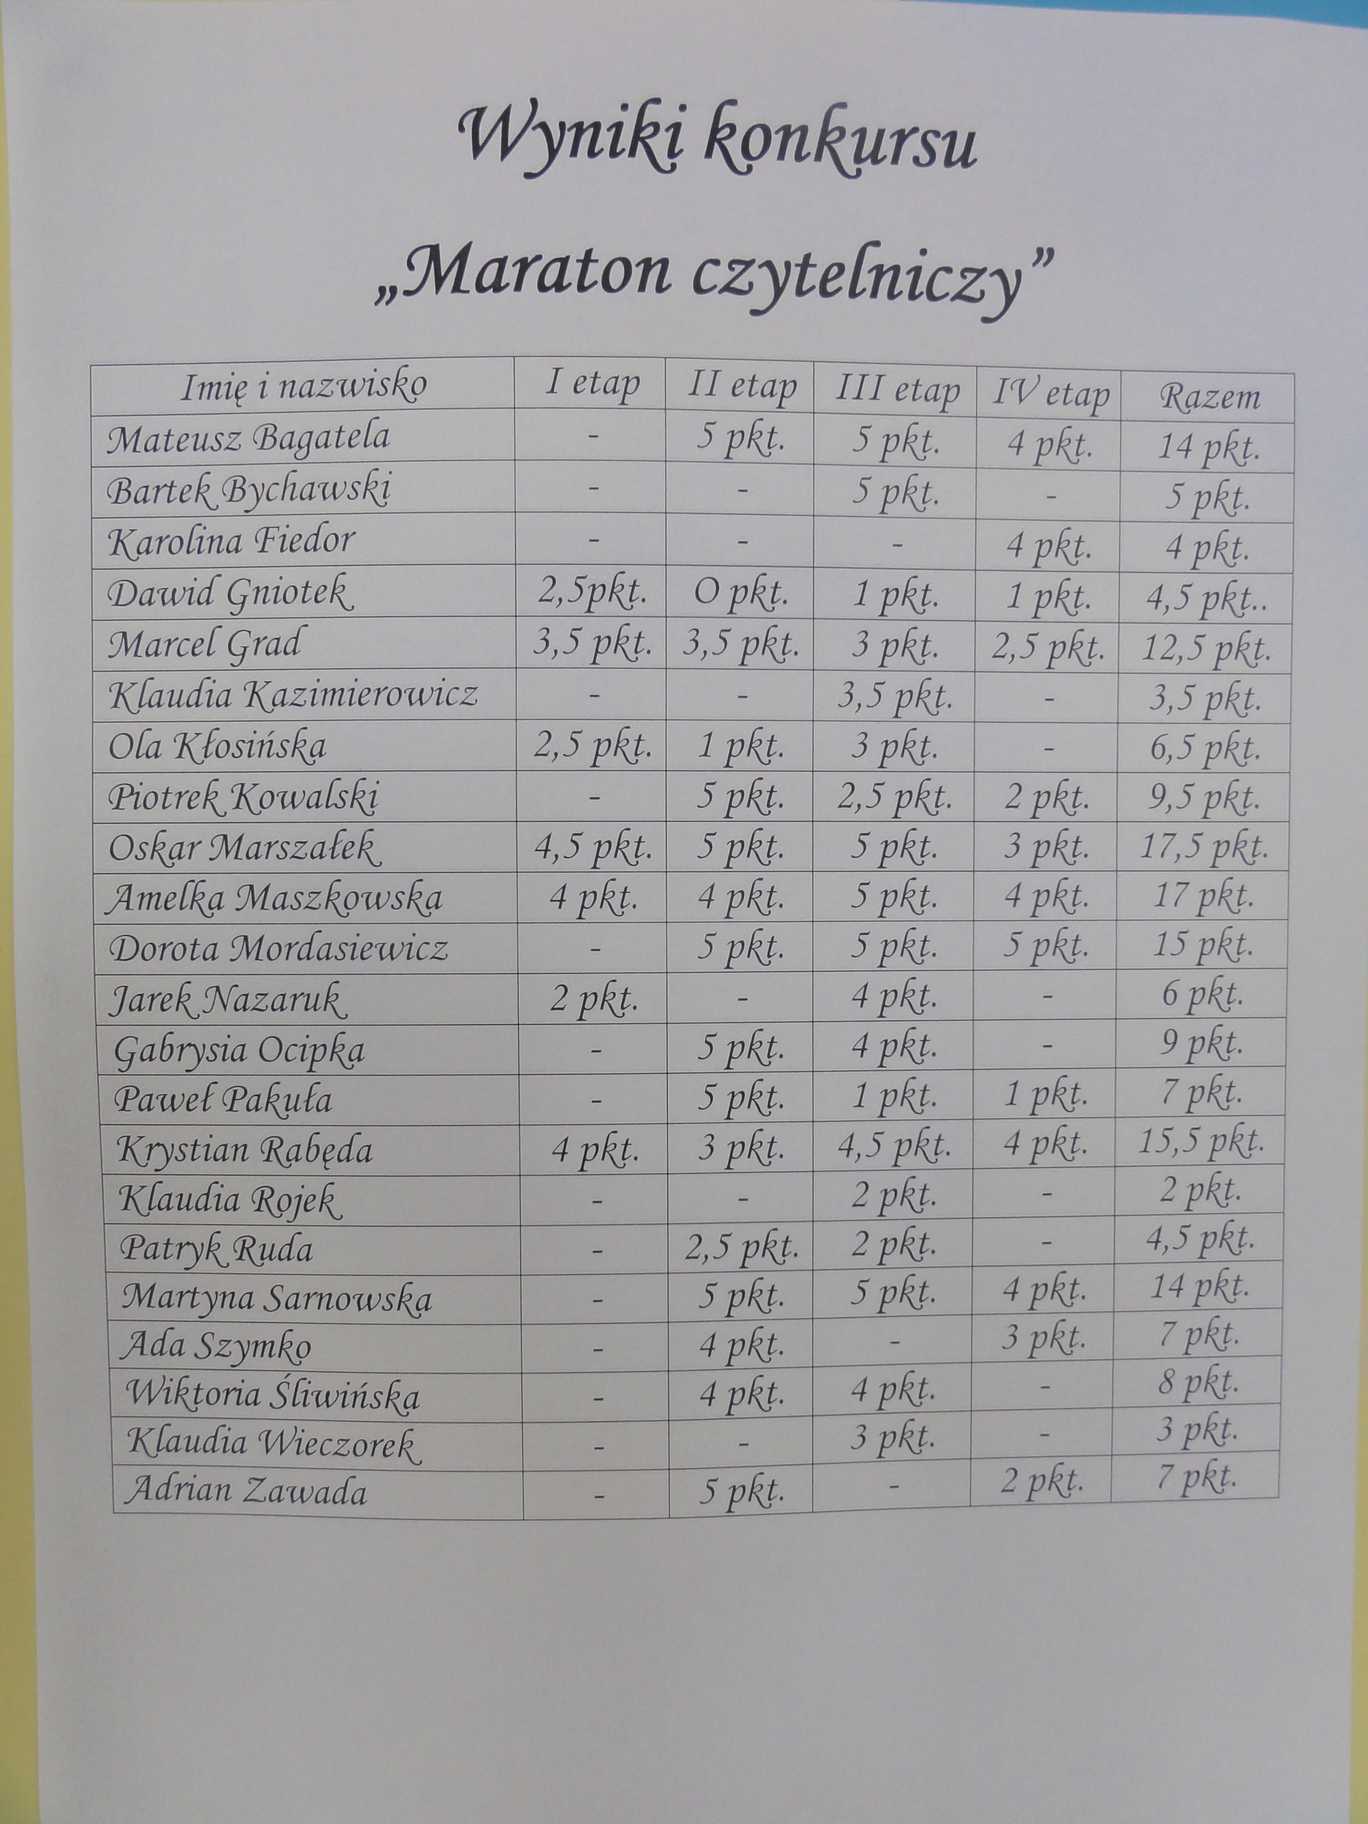 Wyniki konkursu
„Maraton czytelniczy”
Imię i nazwisko I etap II etap III etap IV etap Razem
Mateusz Bagatela - 5 pkt. 5 pkt. 4 pkt. 14 pkt.
Bartek Bychawski - - 5 pkt. - 5 pkt.
Karolina Fiedor - - - 4 pkt. 4 pkt.
Dawid Gniotek 2,5pkt. O pkt. 1 pkt. 1 pkt. 4,5 pkt..
Marcel Grad 3,5 pkt. 3,5 pkt. 3 pkt. 2,5 pkt. 12,5 pkt.
Klaudia Kazimierowicz - - 3,5 pkt. - 3,5 pkt.
Ola Kłosińska 2,5 pkt. 1 pkt. 3 pkt. - 6,5 pkt.
Piotrek Kowalski - 5 pkt. 2,5 pkt. 2 pkt. 9,5 pkt.
Oskar Marszałek 4,5 pkt. 5 pkt. 5 pkt. 3 pkt. 17,5 pkt.
Amelka Maszkowska 4 pkt. 4 pkt. 5 pkt. 4 pkt. 17 pkt.
Dorota Mordasiewicz - 5 pkt. 5 pkt. 5 pkt. 15 pkt.
Jarek Nazaruk 2 pkt. - 4 pkt. - 6 pkt.
Gabrysia Ocipka - 5 pkt. 4 pkt. - 9 pkt.
Paweł Pakuła - 5 pkt. 1 pkt. 1 pkt. 7 pkt.
Krystian Rabęda 4 pkt. 3 pkt. 4,5 pkt. 4 pkt. 15,5 pkt.
Klaudia Rojek - - 2 pkt. - 2 pkt.
Patryk Ruda - 2,5 pkt. 2 pkt. - 4,5 pkt.
Martyna Sarnowska - 5 pkt. 5 pkt. 4 pkt. 14 pkt.
Ada Szymko - 4 pkt. - 3 pkt. 7 pkt.
Wiktoria Śliwińska - 4 pkt. 4 pkt. - 8 pkt.
Klaudia Wieczorek - - 3 pkt. - 3 pkt.
Adrian Zawada - 5 pkt. - 2 pkt. 7 pkt.